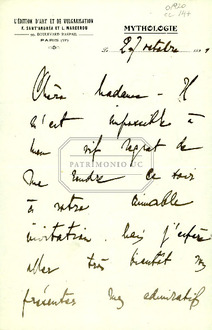 L'ÉDITION D'ART ET DE VULGARISATION
F. SANT'ANDREA ET L. MARCEROU
BOULEVARD RASPAIL
PARIS (VIᵉ)
MYTHOLOGIE
27 octobre
Chère madame – Il
m'est impossible à
mon vif regret de
me rendre ce soir
à votre aimable
invitation. Mais j'espère
aller très bientôt
présenter mes admiratifs
PATRIMONIO UC